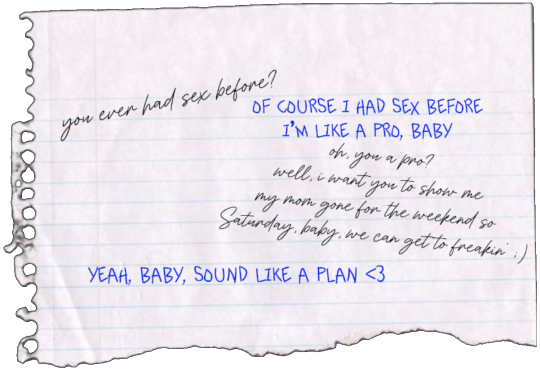 you ever had sex before?
OF COURSE I HAD SEX BEFORE
I'M LIKE A PRO, BABY
oh, you a pro?
well, i want you to show me
my mom gone for the weekend so
Saturday, baby, we can get to freakin' ;)
YEAH, BABY, SOUND LIKE A PLAN <3